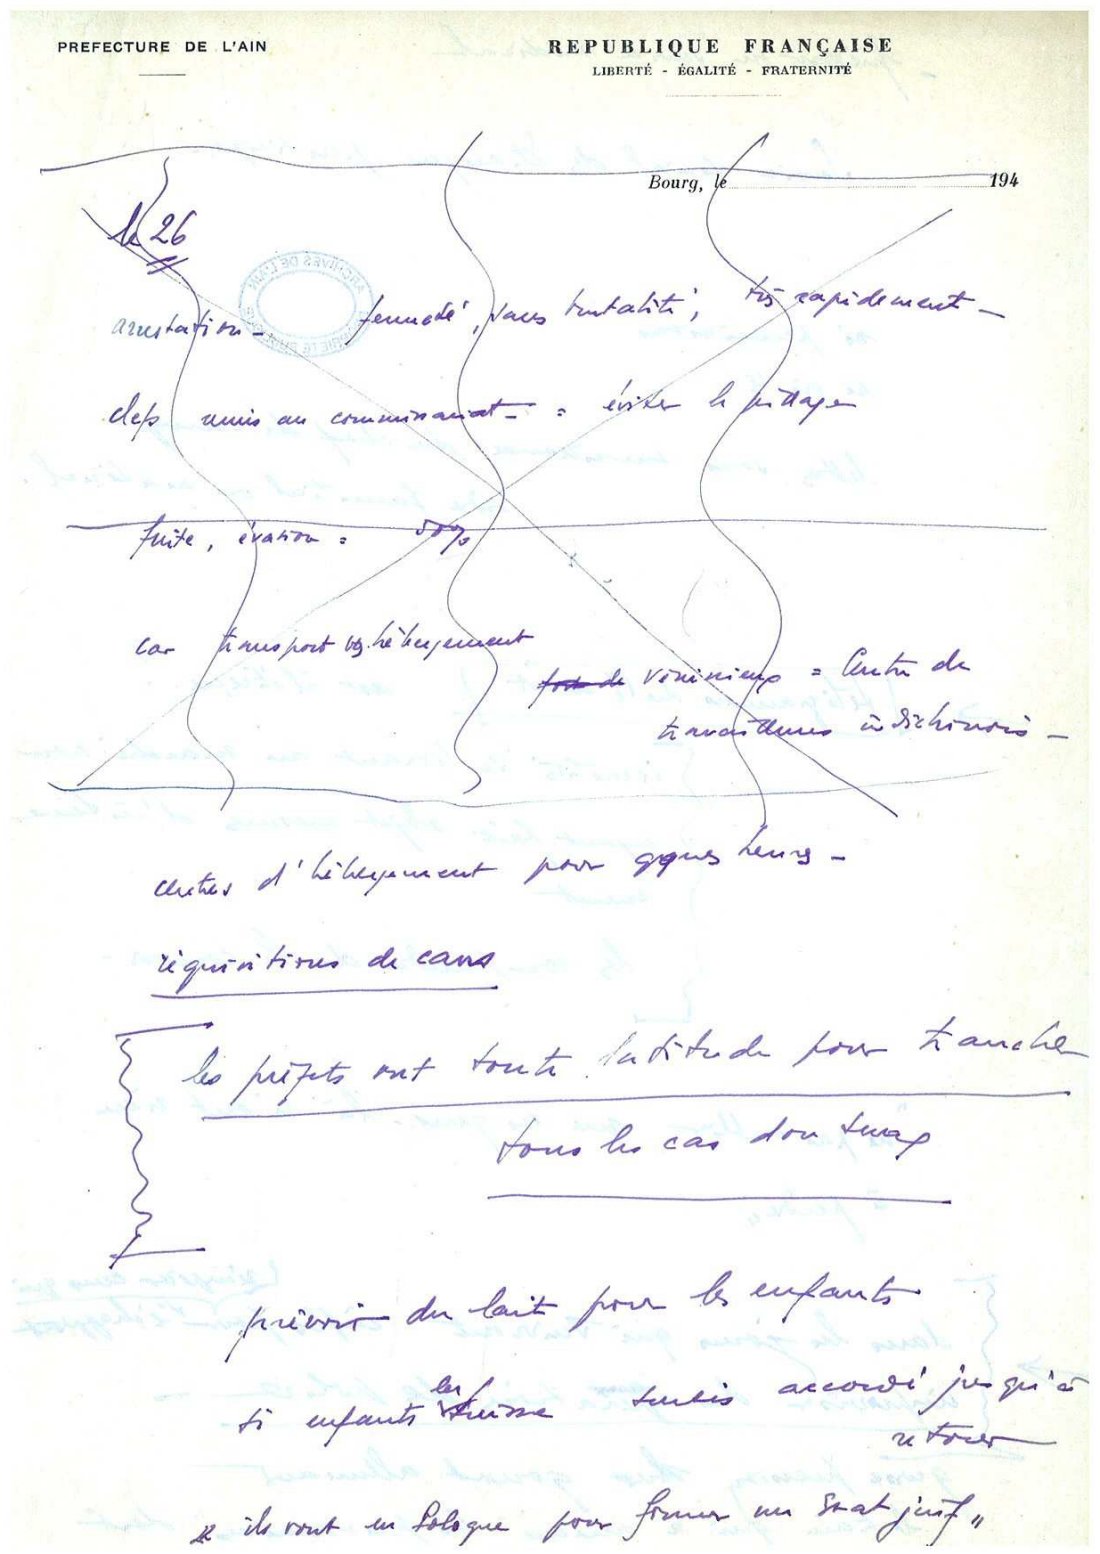 PREFECTURE DE L'AIN
REPUBLIQUE FRANÇAISE
LIBERTÉ - ÉGALITÉ - FRATERNITÉ
Bourg, le 194
le 26
arrestation - fermeté, sans brutalité, très rapidement -
clefs remis au commissariat - = éviter le pillage
fuite, évasion =
car transport vers hébergement
Vénissieux = Centre de
travailleurs indochinois -
centres d'hébergement pour qques heures -
réquisitions de cars
les préfets ont toute latitude pour trancher
tous les cas douteux
prévoir du lait pour les enfants
si enfants en Suisse sursis accordé jusqu'à
retour
ils vont en Pologne pour former un Etat juif "